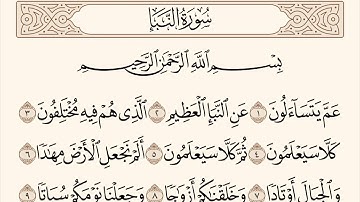 سُورَةُ النَّبَإِ
بِسْمِ اللَّهِ الرَّحْمَٰنِ الرَّحِيمِ
عَمَّ يَتَسَاءَلُونَ ١ عَنِ النَّبَإِ الْعَظِيمِ ٢ الَّذِي هُمْ فِيهِ مُخْتَلِفُونَ ٣
كَلَّا سَيَعْلَمُونَ ٤ ثُمَّ كَلَّا سَيَعْلَمُونَ ٥ أَلَمْ نَجْعَلِ الْأَرْضَ مِهَٰدًا ٦
وَالْجِبَالَ أَوْتَادًا ٧ وَخَلَقْنَاكُمْ أَزْوَاجًا ٨ وَجَعَلْنَا نَوْمَكُمْ سُبَاتًا ٩